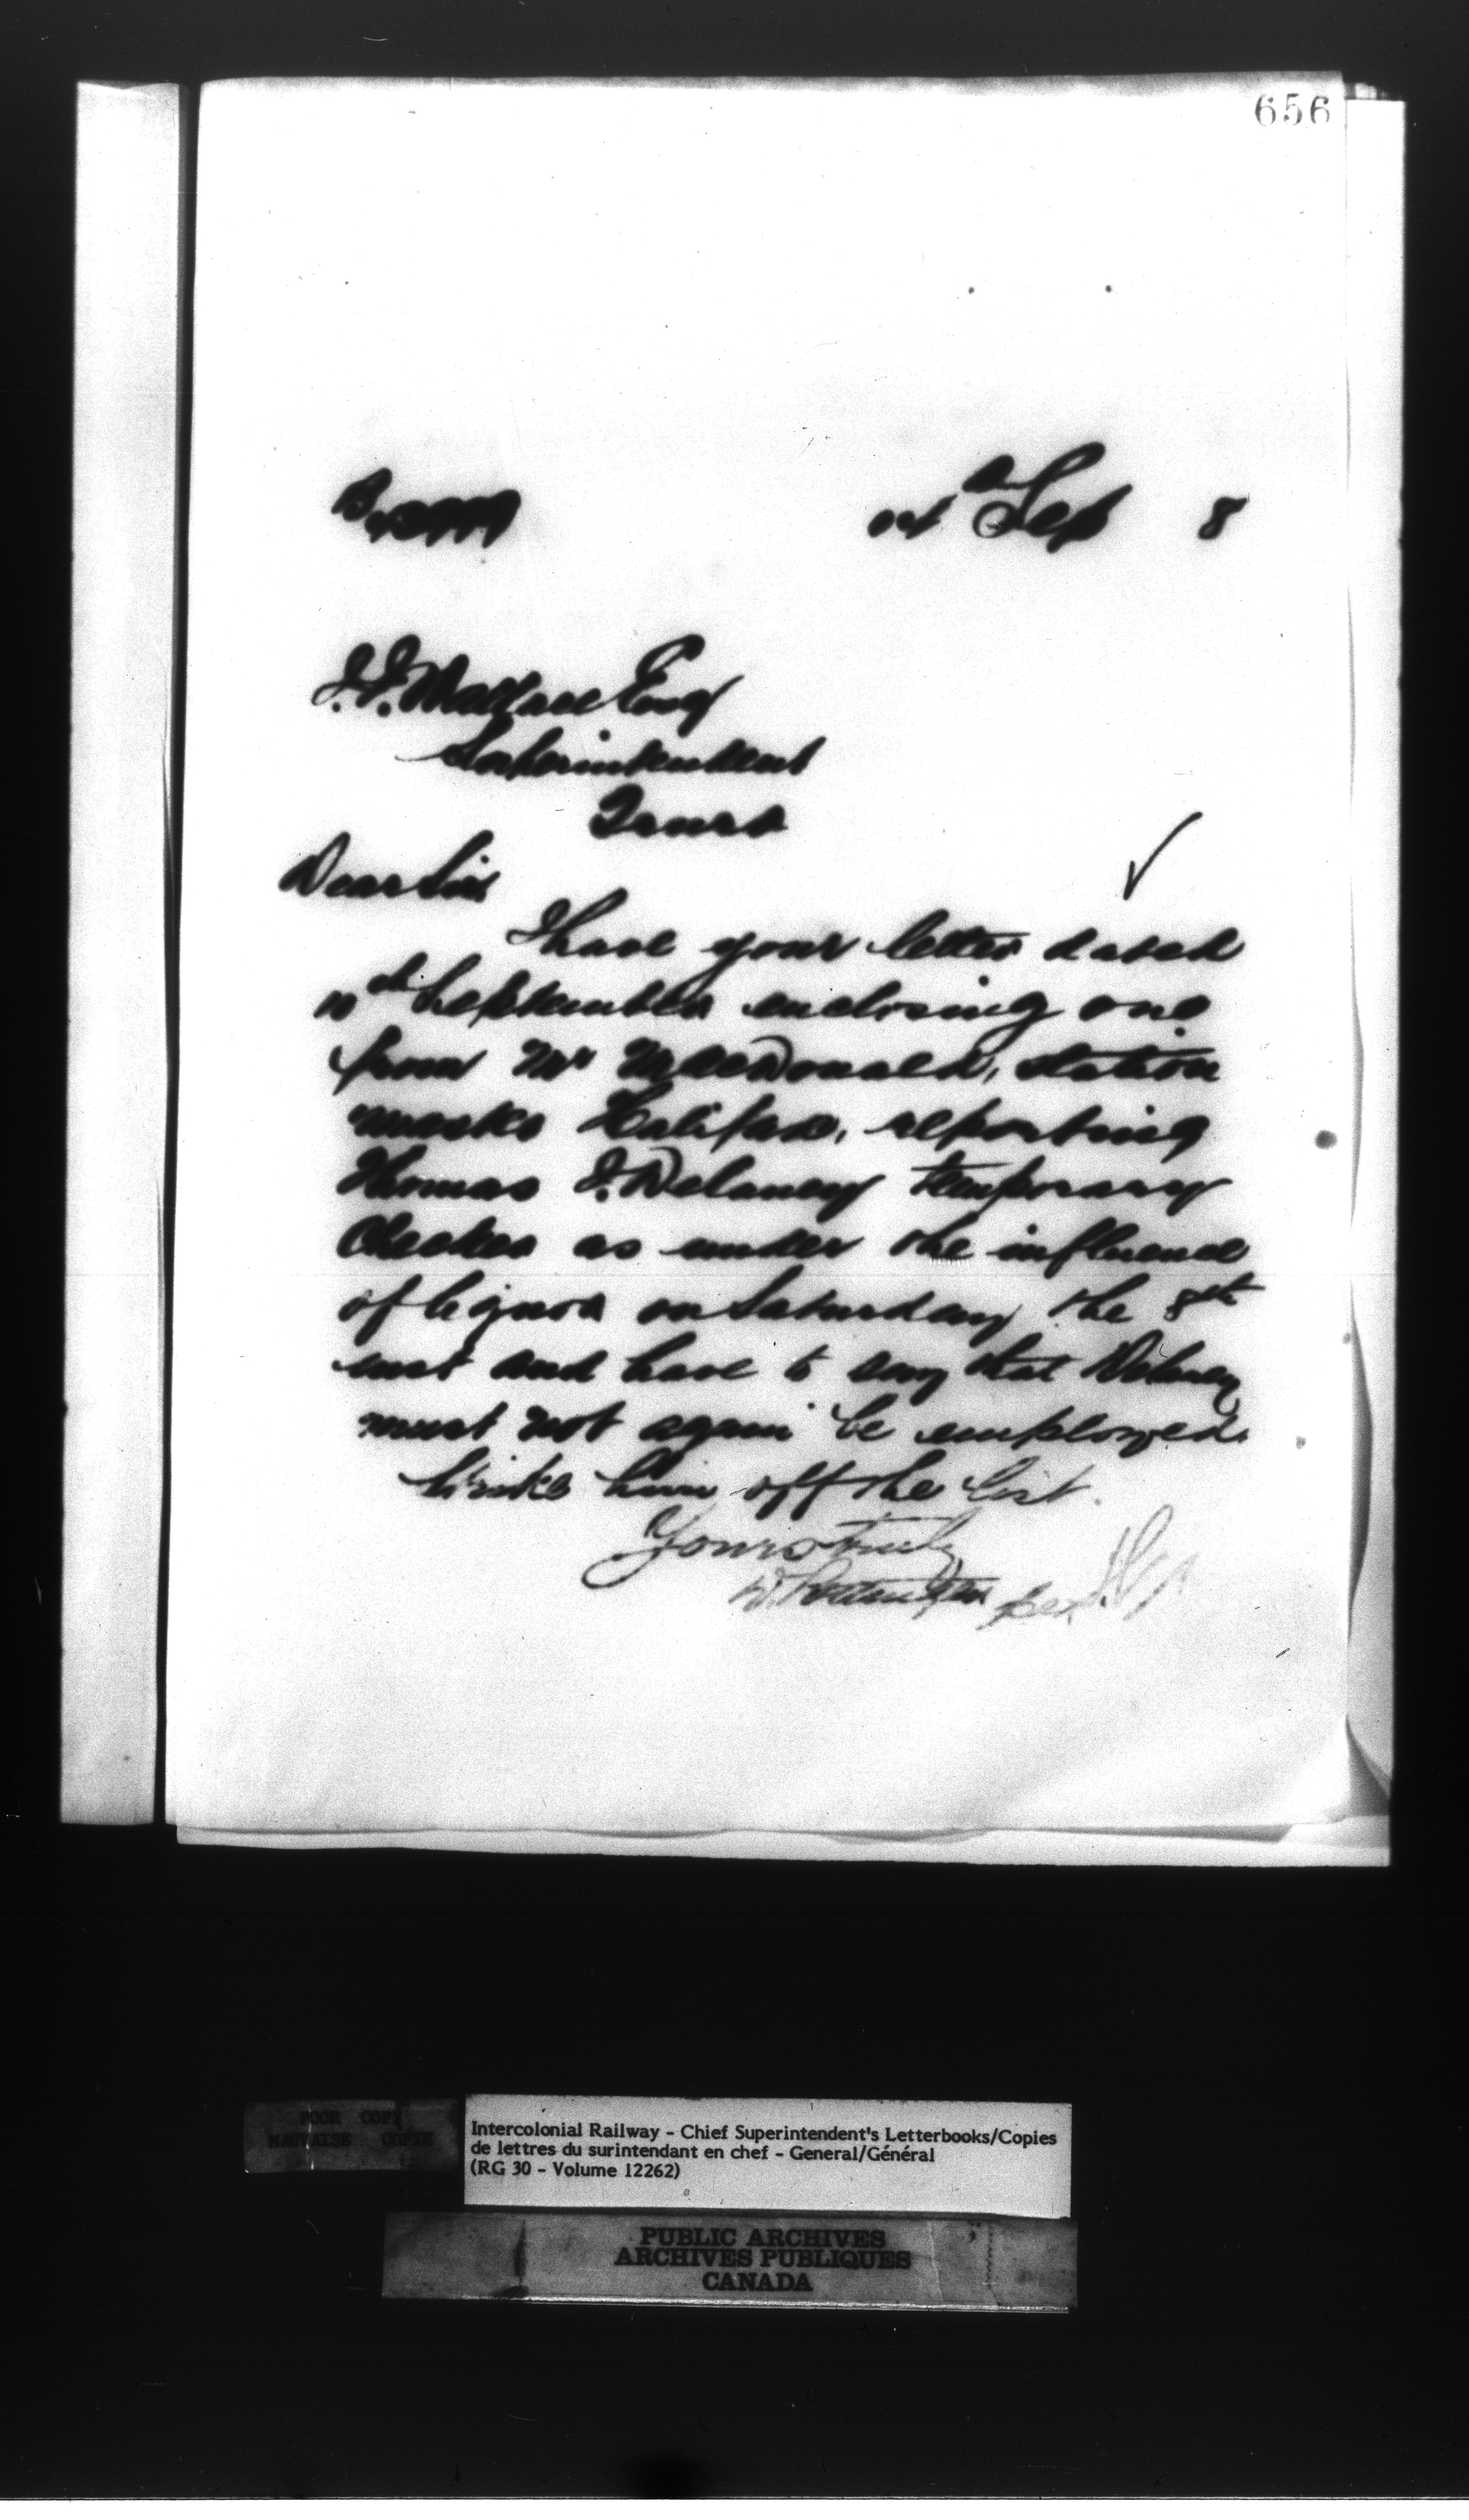 656
Sep 8
J. J. Wallace Esq
Superintendent
Truro
Dear Sir
I have your letter dated
10th September enclosing one
from Mr MacDonald, station
master Halifax, reporting
Thomas J. Delaney temporary
Checker as under the influence
of liquor on Saturday the 8th
inst and have to say that Delaney
must not again be employed.
Strike him off the list.
Yours truly
POOR COPY
MAUVAISE COPIE
Intercolonial Railway - Chief Superintendent's Letterbooks/Copies
de lettres du surintendant en chef - General/Général
(RG 30 - Volume 12262)
PUBLIC ARCHIVES
ARCHIVES PUBLIQUES
CANADA